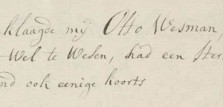 klaagde mij Otto Wesman
-Wel te Wesen, had een ster
nd ook eenige koorts